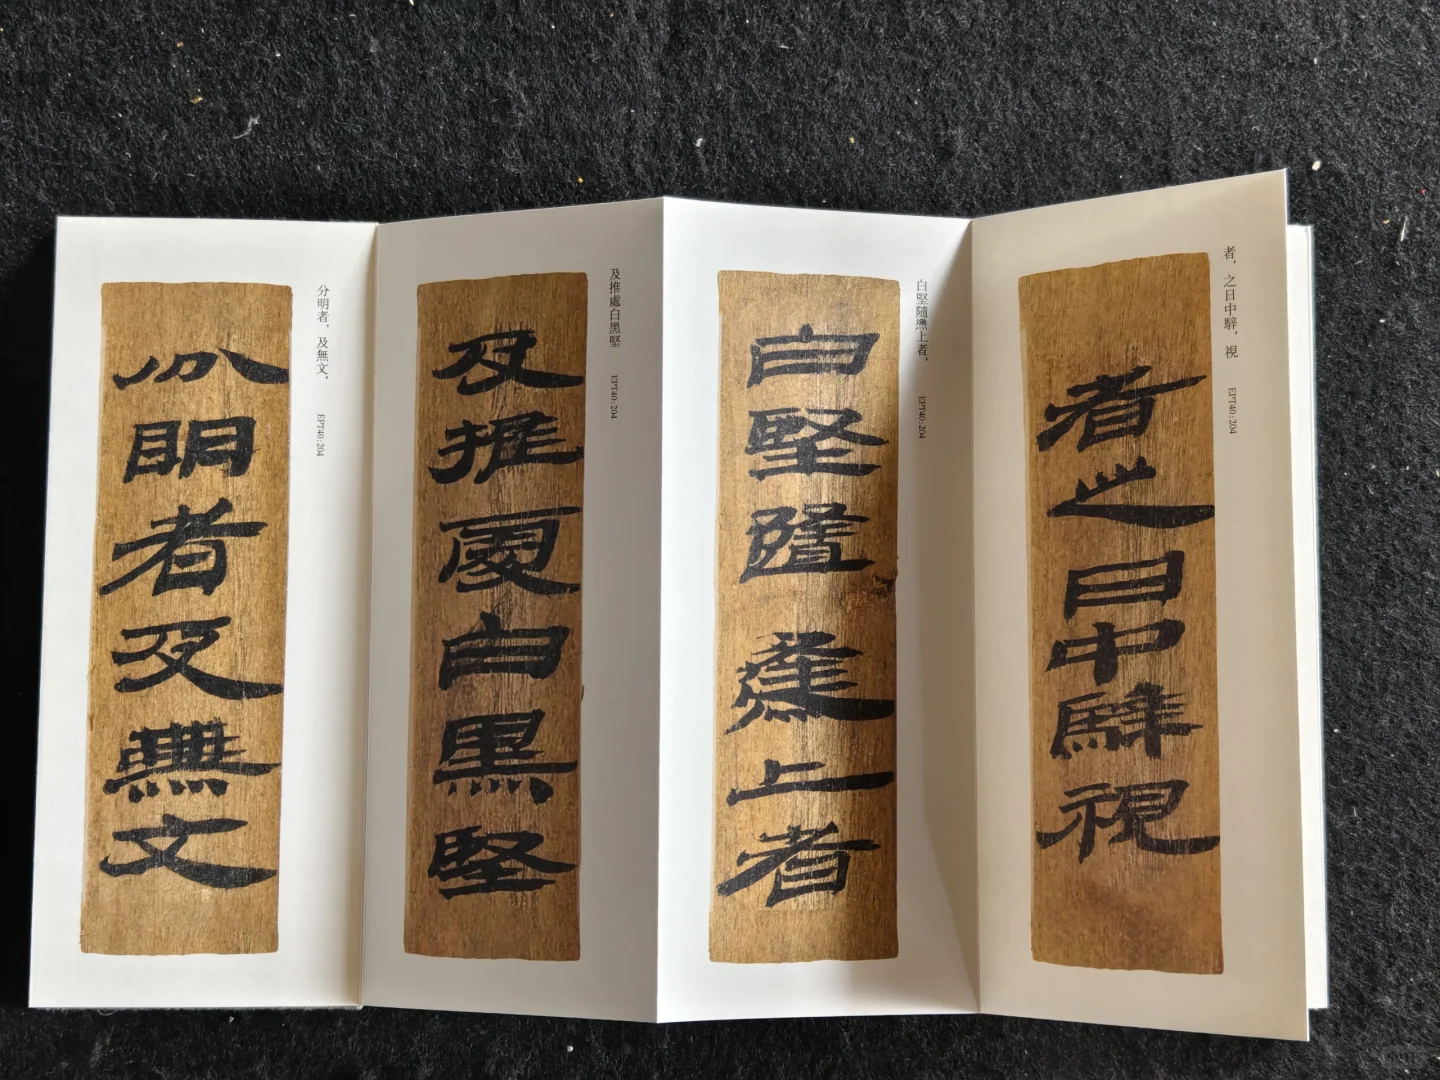 者，之日中騂，視 EPT40:204
者之日中騂視
白堅隨上者， EPT40:204
白堅隨上者
及推處白黑堅 EPT40:204
及推處白黑堅
分明者，及無文， EPT40:204
分明者及無文